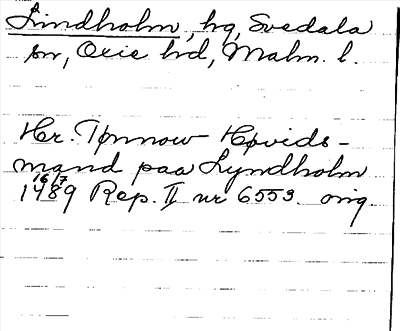 Lindholm, hg, Svedala
sn, Oxie hd, Malm. l.
Hr. Tønnow Høvids-
mand paa Lyndholm
16/7
1489 Rep. II nr 6553. orig.